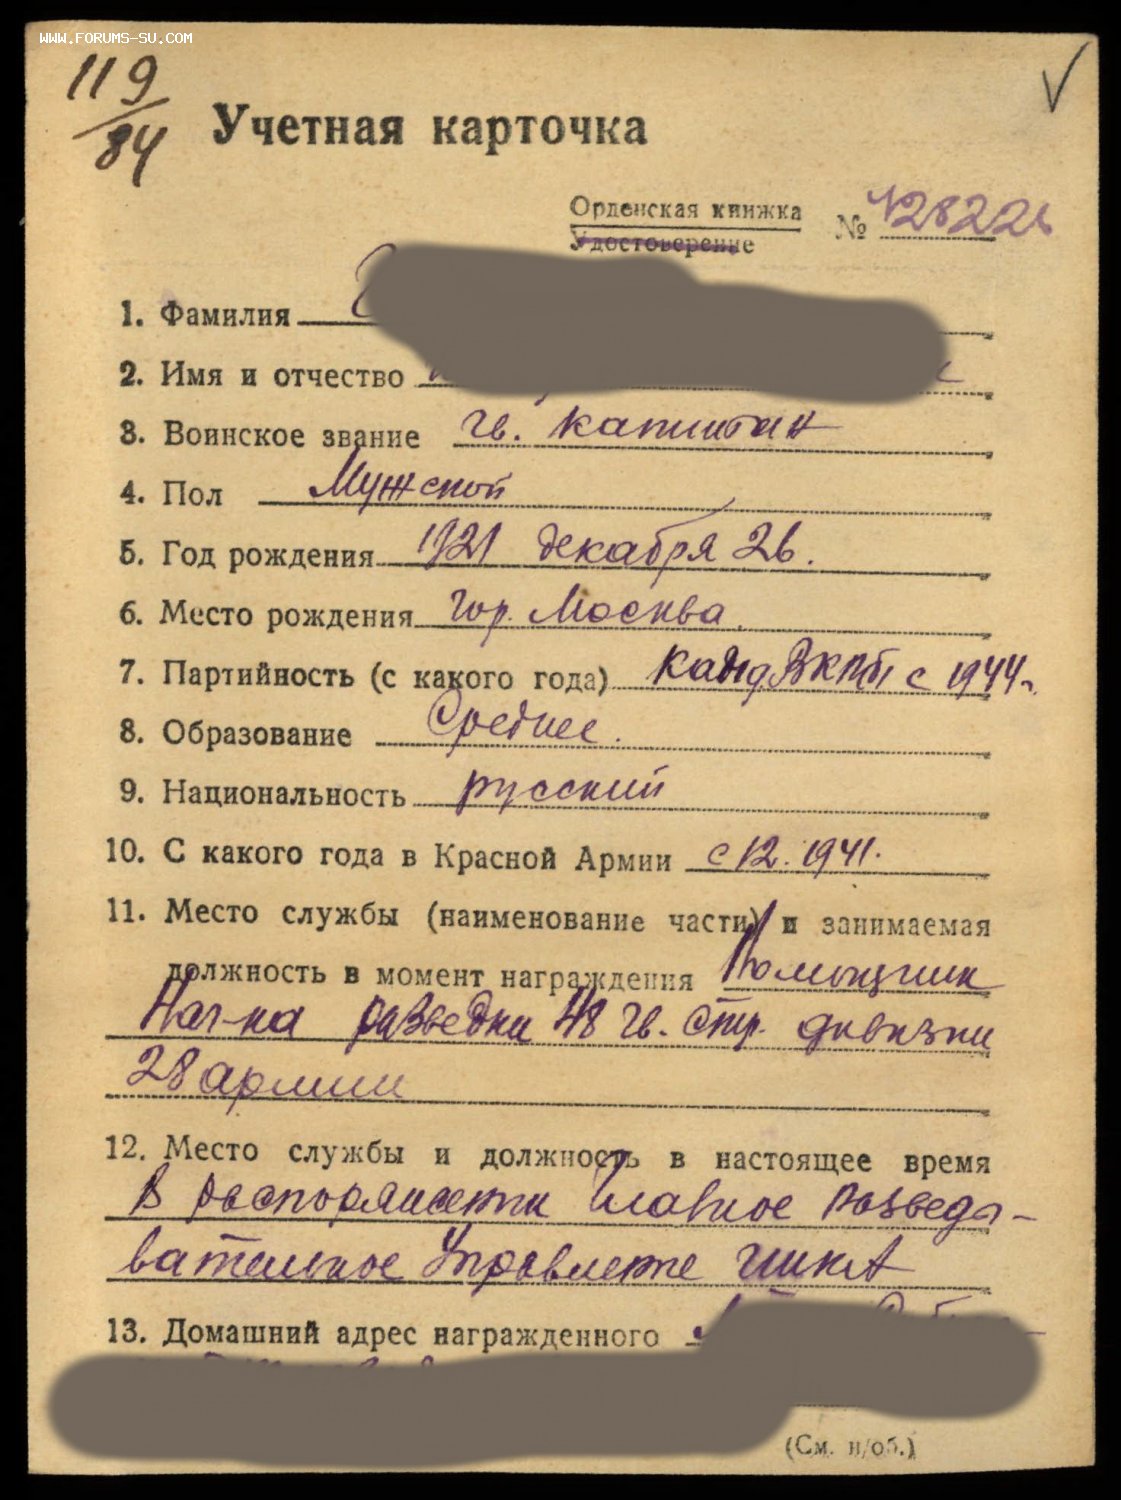 WWW.FORUMS-SU.COM
119
84
Учетная карточка
Орденская книжка
Удостоверение
№
1. Фамилия
2. Имя и отчество
3. Воинское звание гв. капитан
4. Пол Мужской
5. Год рождения 1921 декабря 26.
6. Место рождения гор. Москва.
7. Партийность (с какого года) канд ВКПб с 1944 г.
8. Образование Среднее.
9. Национальность русский
10. С какого года в Красной Армии с 12. 1941.
11. Место службы (наименование части) и занимаемая
должность в момент награждения Помощник
Нач-ка разведки 48 гв. стр. дивизии
28 армии
12. Место службы и должность в настоящее время
В распоряжении Главное Разведы-
вательное Управление
13. Домашний адрес награжденного
(См. н/об.)